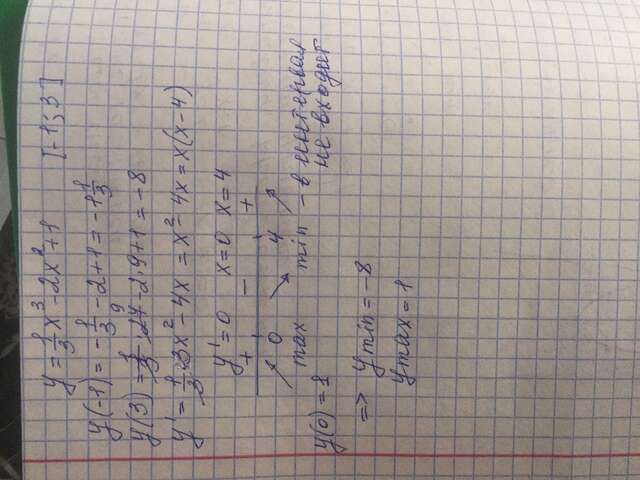 y = 1/3 x³ - 2x² + 1 [-1; 3]
y(-1) = -1/3 - 2 + 1 = -1 1/3
y(3) = 1/3 · 27 9 - 2·9 + 1 = -8
y' = 1/3 · 3x² - 4x = x² - 4x = x(x - 4)
y' = 0 x = 0 x = 4
+ - +
↗ 0 ↘ 4 ↗
max min - в интервал
не входит
y(0) = 1
=> ymin = -8
ymax = 1